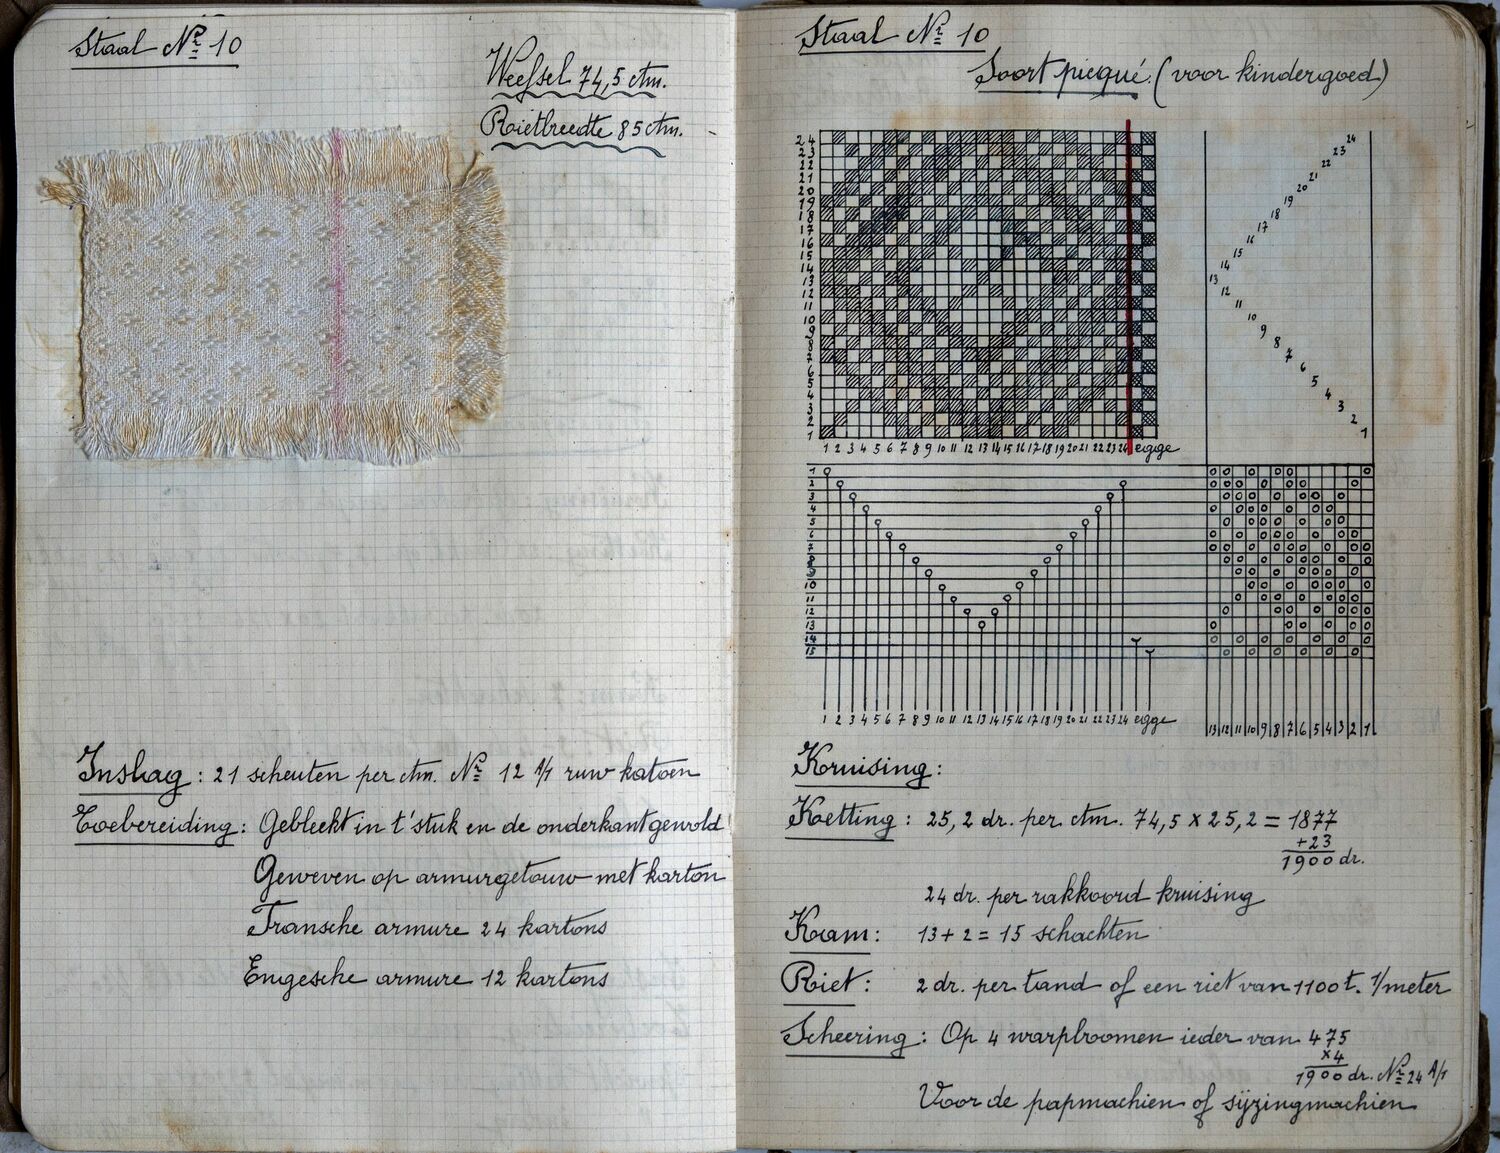 Staal Nr 10
Weefsel 74,5 ctm.
Rietbreedte 85 ctm.
Inslag : 21 scheuten per ctm. Nr 12 A/1 ruw katoen
Toebereiding : Gebleekt in t'stuk en de onderkant gewold
Geweven op armurgetouw met karton
Fransche armure 24 kartons
Engesche armure 12 kartons
Staal Nr 10
Soort picqué. (voor kindergoed)
24
23
22
21
20
19
18
17
16
15
14
13
12
11
10
9
8
7
6
5
4
3
2
1
1 2 3 4 5 6 7 8 9 10 11 12 13 14 15 16 17 18 19 20 21 22 23 24 egge
24
23
22
21
20
19
18
17
16
15
14
13
12
11
10
9
8
7
6
5
4
3
2
1
1
2
3
4
5
6
7
8
9
10
11
12
13
14
15
1 2 3 4 5 6 7 8 9 10 11 12 13 14 15 16 17 18 19 20 21 22 23 24 egge
13 12 11 10 9 8 7 6 5 4 3 2 1
Kruising :
Ketting : 25,2 dr. per ctm. 74,5 x 25,2 = 1877
+23
1900 dr.
24 dr. per rakkoord kruising
Kam : 13 + 2 = 15 schachten
Riet : 2 dr. per tand of een riet van 1100 t. 1/meter
Scheering : Op 4 warpboomen ieder van 475
x4
1900 dr. Nr 24 A/1
Voor de papmachien of sijzingmachien